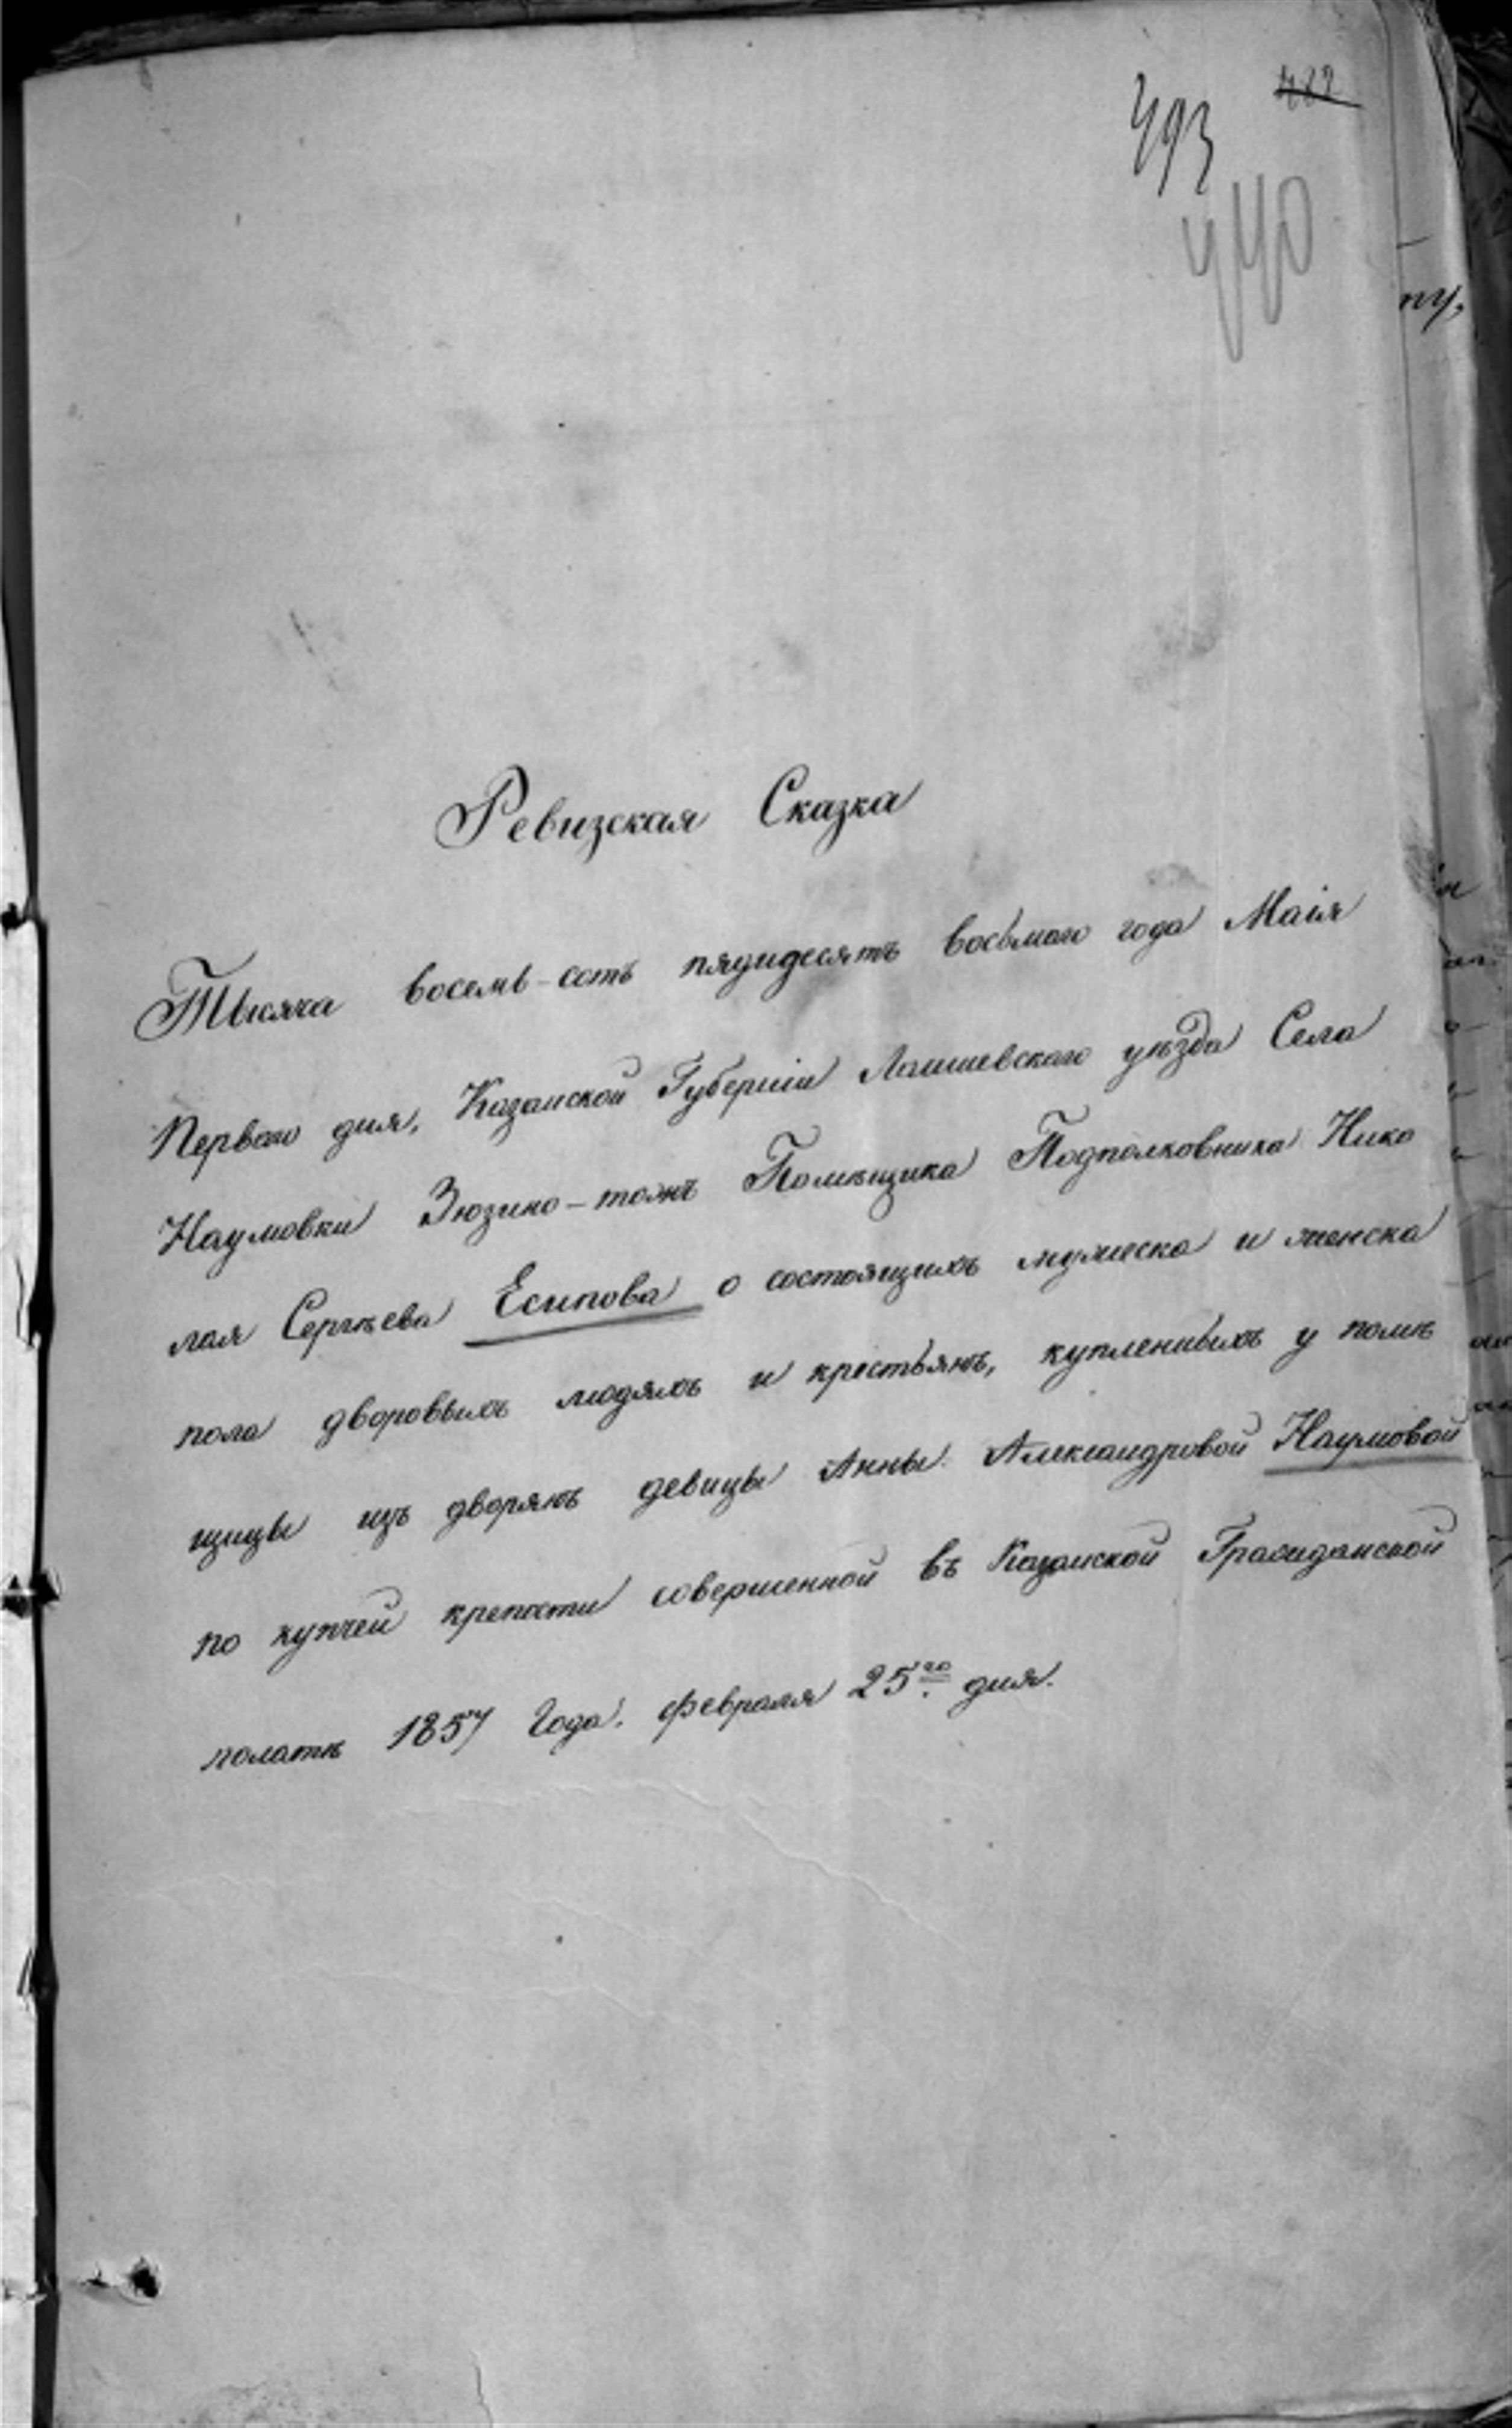 422
493
440
пу,
Ревизская Сказка
Тысяча восемь-сотъ пядидесятъ восьмаго года Маія
Перваго дня, Казанской Губерніи Лаишевскаго уѣзда Села
Наумовки Зюзино-тожъ Помѣщика Подполковника Нико
лая Сергѣева Есипова о состоящихъ мужеска и женска
пола дворовыхъ людяхъ и крестьянъ, купленныхъ у помѣ
щицы изъ дворянъ девицы Анны Александровой Наумовой
по купчей крепости совершенной въ Казанской Гражданской
палатѣ 1857 Года. февраля 25го дня.